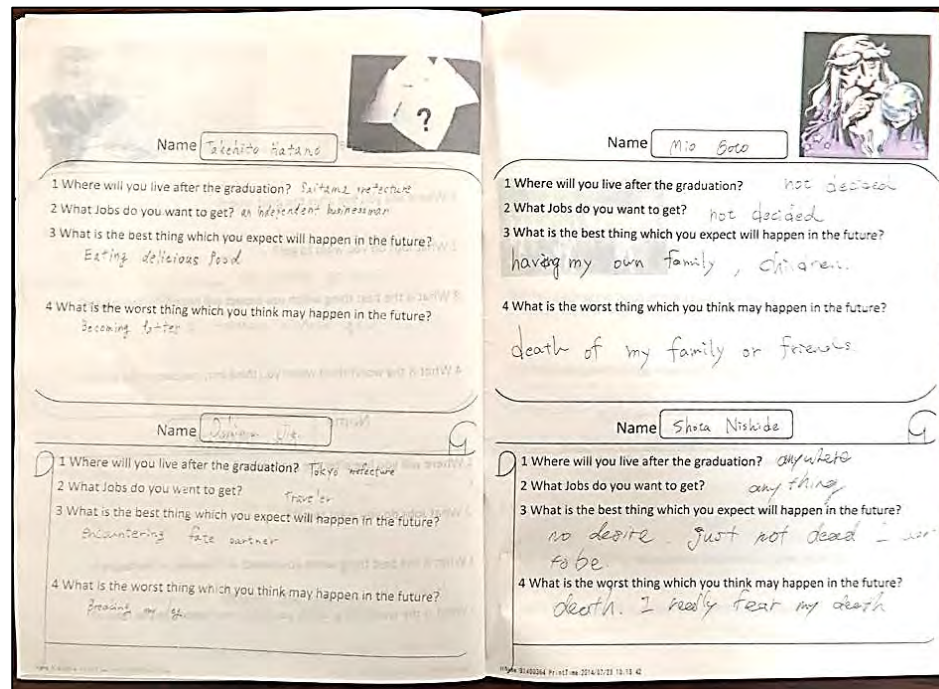 ?
Name Takehito Hatano
1 Where will you live after the graduation? Saitama prefecture
2 What Jobs do you want to get? an independent businessman
3 What is the best thing which you expect will happen in the future?
Eating delicious food
4 What is the worst thing which you think may happen in the future?
Becoming fatter
Name
1 Where will you live after the graduation? Tokyo prefecture
2 What Jobs do you want to get? Traveler
3 What is the best thing which you expect will happen in the future?
Encountering fate partner
4 What is the worst thing which you think may happen in the future?
my
Name Mio Goto
1 Where will you live after the graduation? not decided
2 What Jobs do you want to get? not decided
3 What is the best thing which you expect will happen in the future?
having my own family, children.
4 What is the worst thing which you think may happen in the future?
death of my family or friends
Name Shota Nishide
1 Where will you live after the graduation? anywhere
2 What Jobs do you want to get? anything
3 What is the best thing which you expect will happen in the future?
no desire. just not dead I
to be.
4 What is the worst thing which you think may happen in the future?
death. I really fear my death
PrintTime:2014/07/23